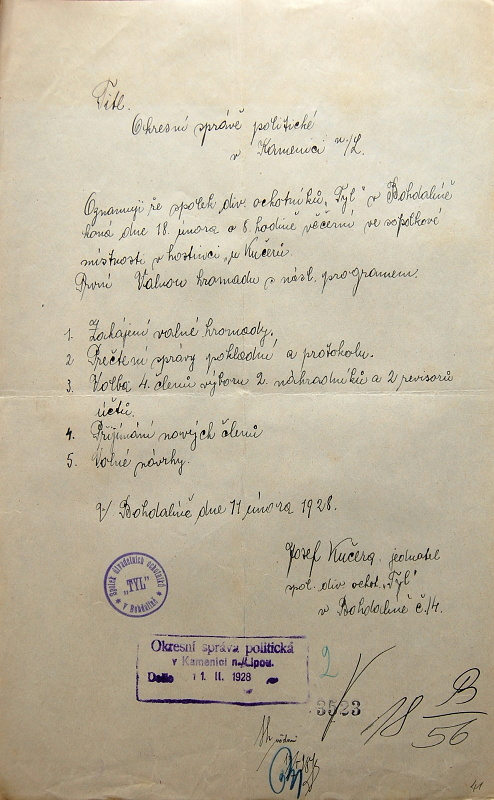 Titl.
Okresní správě politické
v Kamenici n/L.
Oznamuji že spolek div. ochotníků „Tyl" v Bohdalíně
koná dne 18. února o 8. hodině věčerní ve spolkové
místnosti v hostinci „u Kučerů.
První Valnou hromadu s násl. programem.
1. Zahájení valné hromady.
2 Přečtení spravy pokladní a protokolu.
3. Volba 4. členů výboru 2. náhradníků a 2 revisorů
účtů.
4. Přijímání nových členů
5. Volné návrhy.
V Bohdalíně dne 11 února 1928.
Josef Kučera jednatel
spol. div. ochot. „Tyl"
v Bohdalíně č./4.
Spolek divadelních ochotníků
„TYL"
v Bohdalíně
Okresní správa politická
v Kamenici n./Lipou.
Došlo 11. II. 1928
2
3523
18 B/56
41